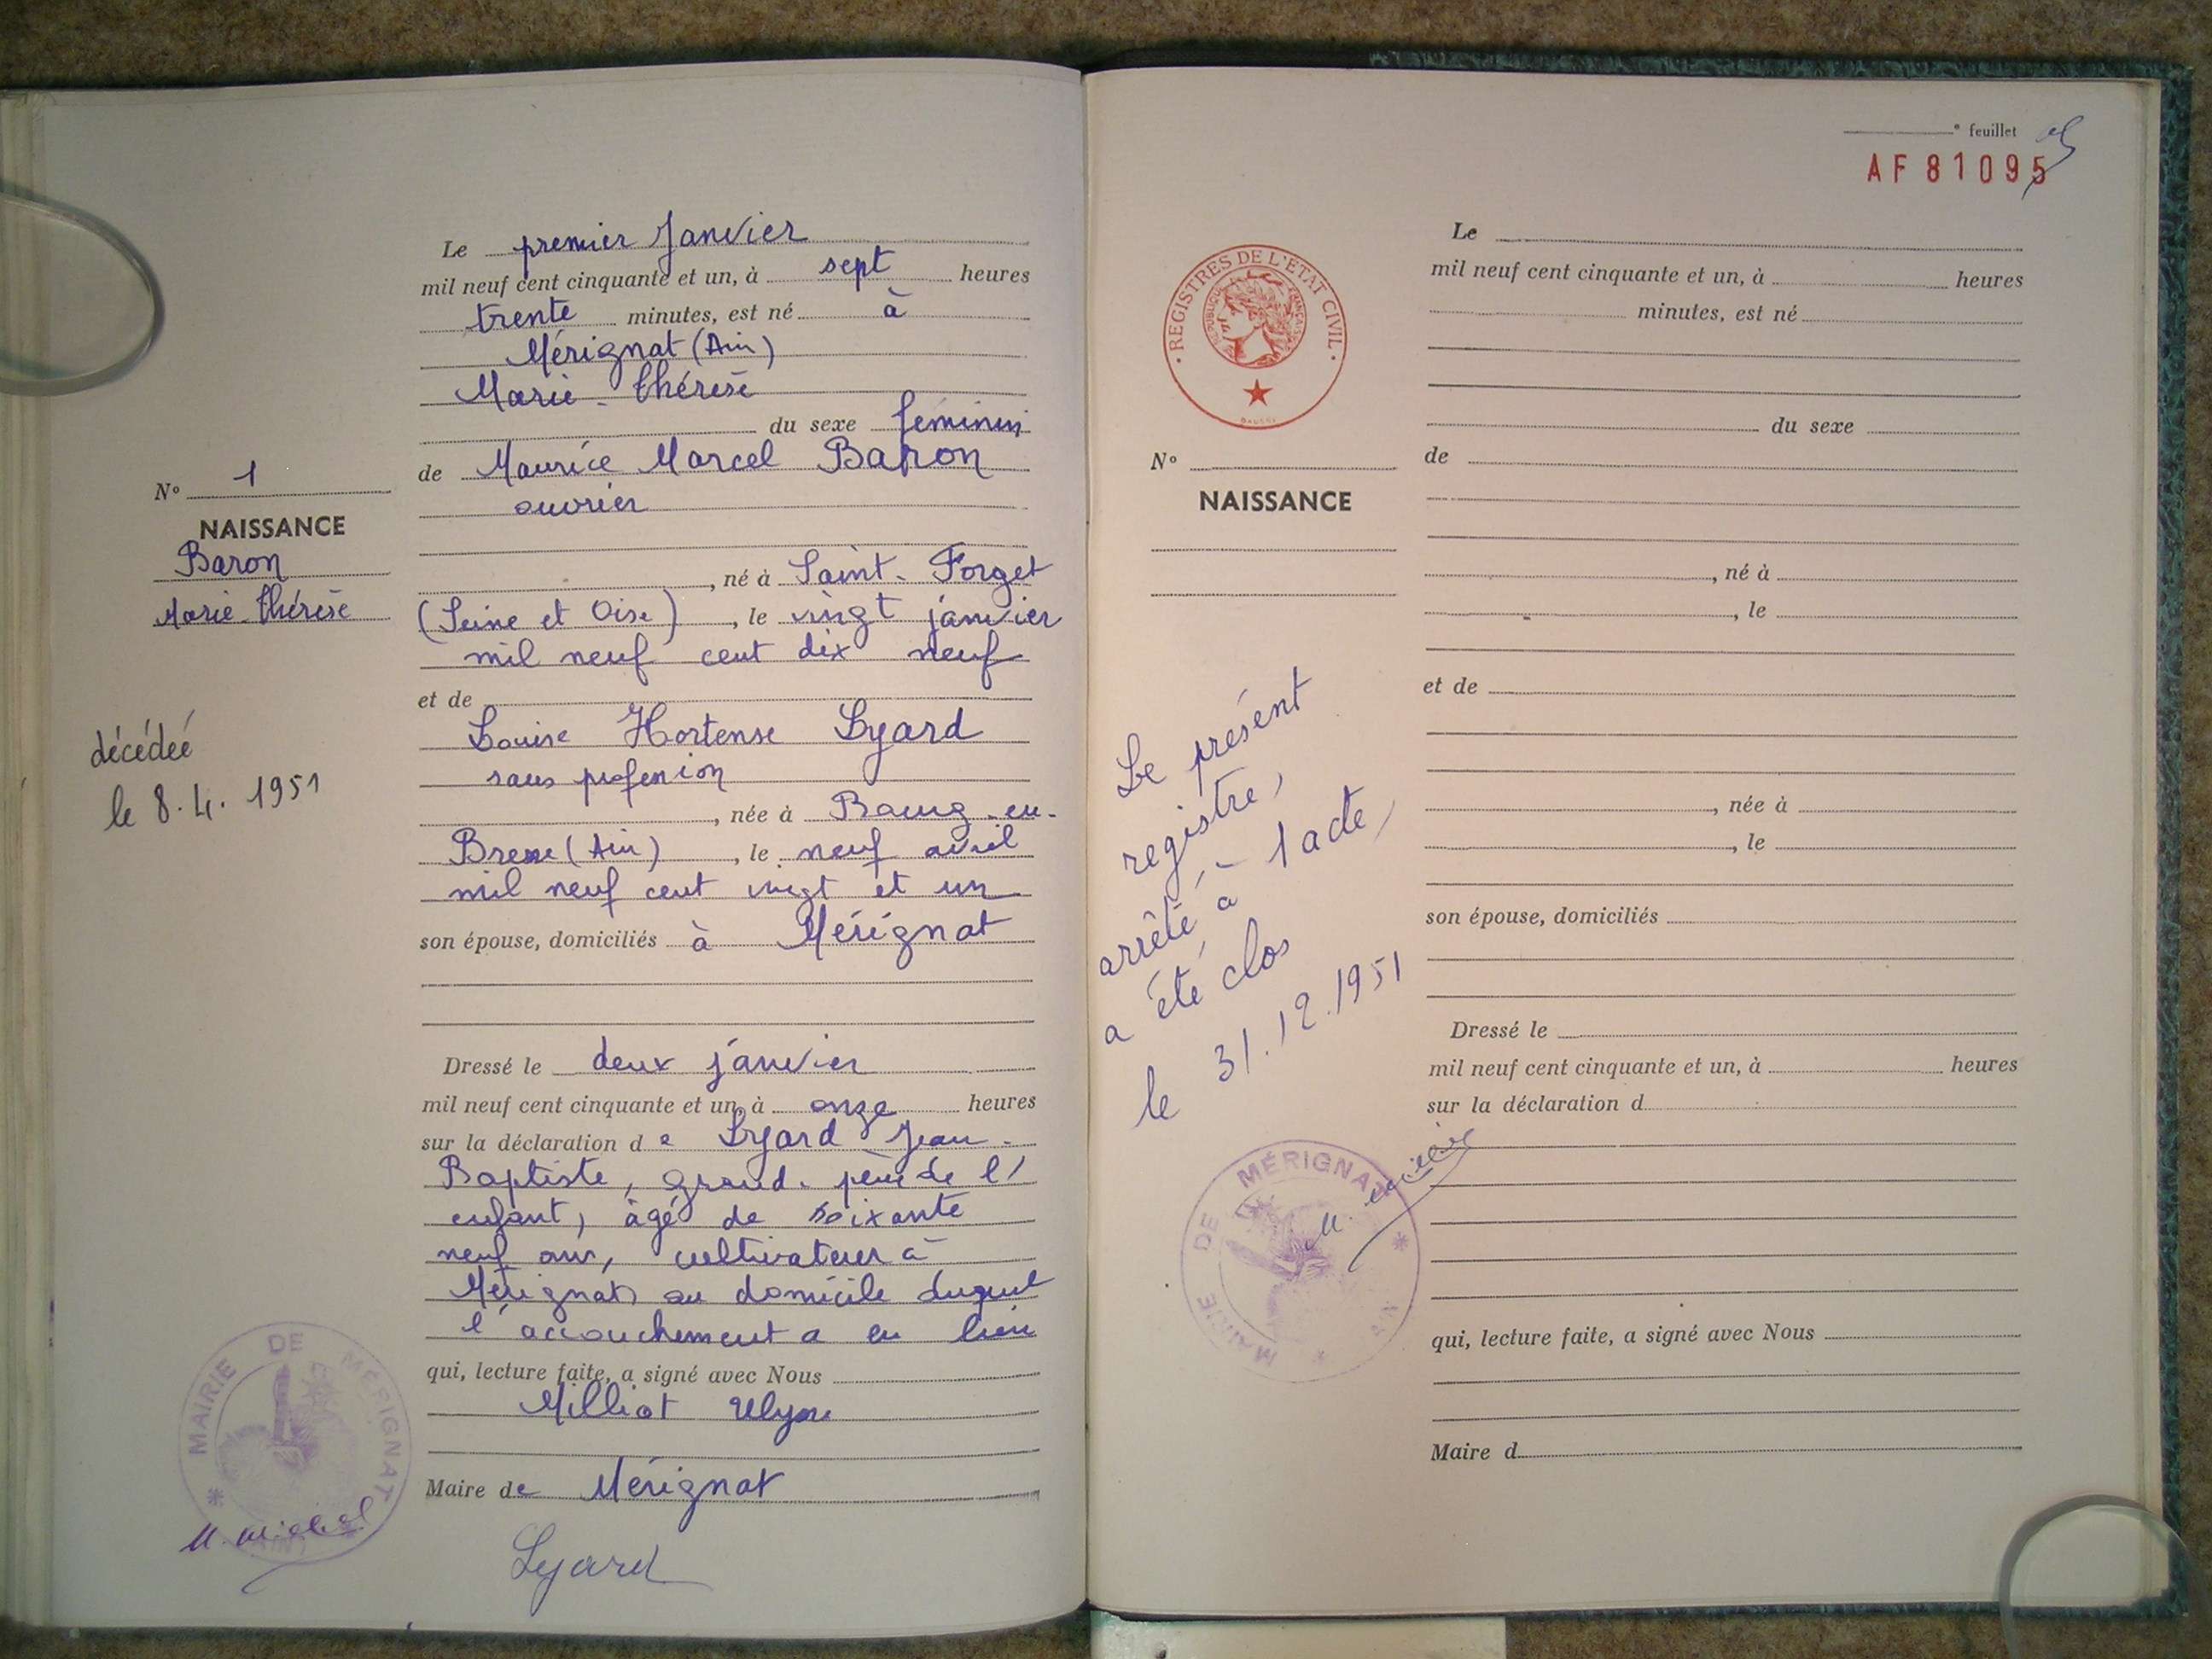 Le premier Janvier
mil neuf cent cinquante et un, à sept heures
trente minutes, est né à
Mérignat (Ain)
Marie-Thérèse
du sexe féminin
de Maurice Marcel Baron
ouvrier
, né à Saint-Forget
(Seine et Oise), le vingt janvier
mil neuf cent dix neuf
et de
Louise Hortense Lyard
sans profession
, née à Bourg-en-
Bresse (Ain), le neuf avril
mil neuf cent vingt et un
son épouse, domiciliés à Mérignat
Dressé le deux janvier
mil neuf cent cinquante et un, à onze heures
sur la déclaration de Lyard Jean-
Baptiste, grand-père de l'
enfant, âgé de soixante
neuf ans, cultivateur à
Mérignat au domicile duquel
l'accouchement a eu lieu
qui, lecture faite, a signé avec Nous
Milliat Ulysse
Maire de Mérignat
Lyard
N° 1
NAISSANCE
Baron
Marie-Thérèse
décédée
le 8.4.1951
MAIRIE DE MÉRIGNAT
e feuillet
AF 81095
REGISTRES DE L'ÉTAT CIVIL
RÉPUBLIQUE FRANÇAISE
N°
NAISSANCE
Le présent
registre,
arrêté à 1 acte,
a été clos
le 31.12.1951
MAIRIE DE MÉRIGNAT
AIN
Le
mil neuf cent cinquante et un, à heures
minutes, est né
du sexe
de
, né à
, le
et de
, née à
, le
son épouse, domiciliés
Dressé le
mil neuf cent cinquante et un, à heures
sur la déclaration d
qui, lecture faite, a signé avec Nous
Maire d